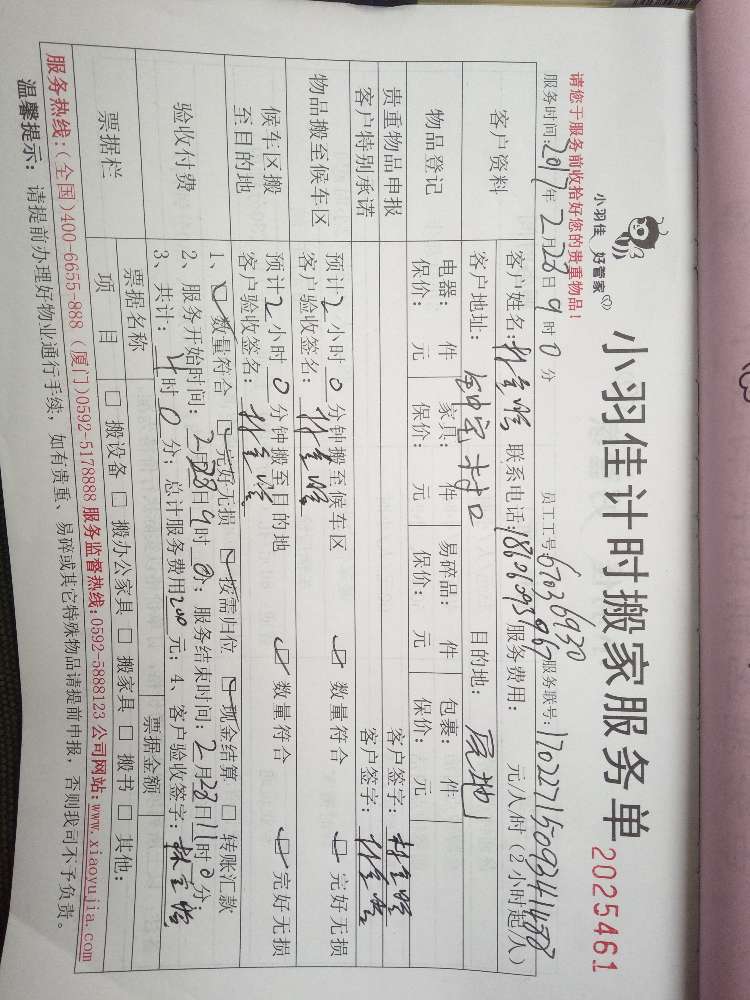 小羽佳 好管家
小羽佳计时搬家服务单
2025461
请您于服务前收拾好您的贵重物品！
员工工号:67036930 服务联号:
服务时间:2017年2月28日9时0分
客户资料
客户姓名: 联系电话: 服务费用: 元/人/时（2小时起/人）
客户地址: 村口 目的地: 原地
物品登记
电器: 件 家具: 件 易碎品: 件 包裹: 件
保价: 元 保价: 元 保价: 元 保价: 元
贵重物品申报 客户签字:
客户特别承诺 客户签字:
物品搬至候车区
预计2小时0分钟搬至候车区 ☑数量符合 ☑完好无损
客户验收签名:
候车区搬至目的地
预计2小时0分钟搬至目的地 ☑数量符合 ☑完好无损
客户验收签名:
验收付费
1、☑数量符合 ☑完好无损 ☑按需归位 ☑现金结算 □转账汇款
2、服务开始时间:2月28日9时0分；服务结束时间:2月28日11时0分；
3、共计:4时0分；总计服务费用200元；4、客户验收签字:
票据栏
票据名称 票据金额
项目 □搬设备 □搬办公家具 □搬家具 □搬书 □其他:
服务热线:(全国)400-6655-888 (厦门)0592-5178888 服务监督热线:0592-5888123 公司网站:www.xiaoyujia.com
温馨提示: 请提前办理好物业通行手续，如有贵重、易碎或其它特殊物品请提前申报，否则我司不予负责。